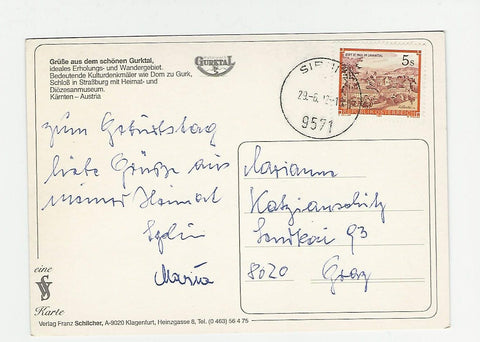 Grüße aus dem schönen Gurktal,
ideales Erholungs- und Wandergebiet.
Bedeutende Kulturdenkmäler wie Dom zu Gurk,
Schloß in Straßburg mit Heimat- und
Diözesanmuseum.
Kärnten – Austria
GURKTAL
5 S
REPUBLIK ÖSTERREICH
9571
zum Geburtstag
liebe Grüße aus
meiner Heimat
Maria
Marianne
93
8020 Graz
eine
Karte
Verlag Franz Schilcher, A-9020 Klagenfurt, Heinzgasse 8, Tel. (0 463) 56 4 75